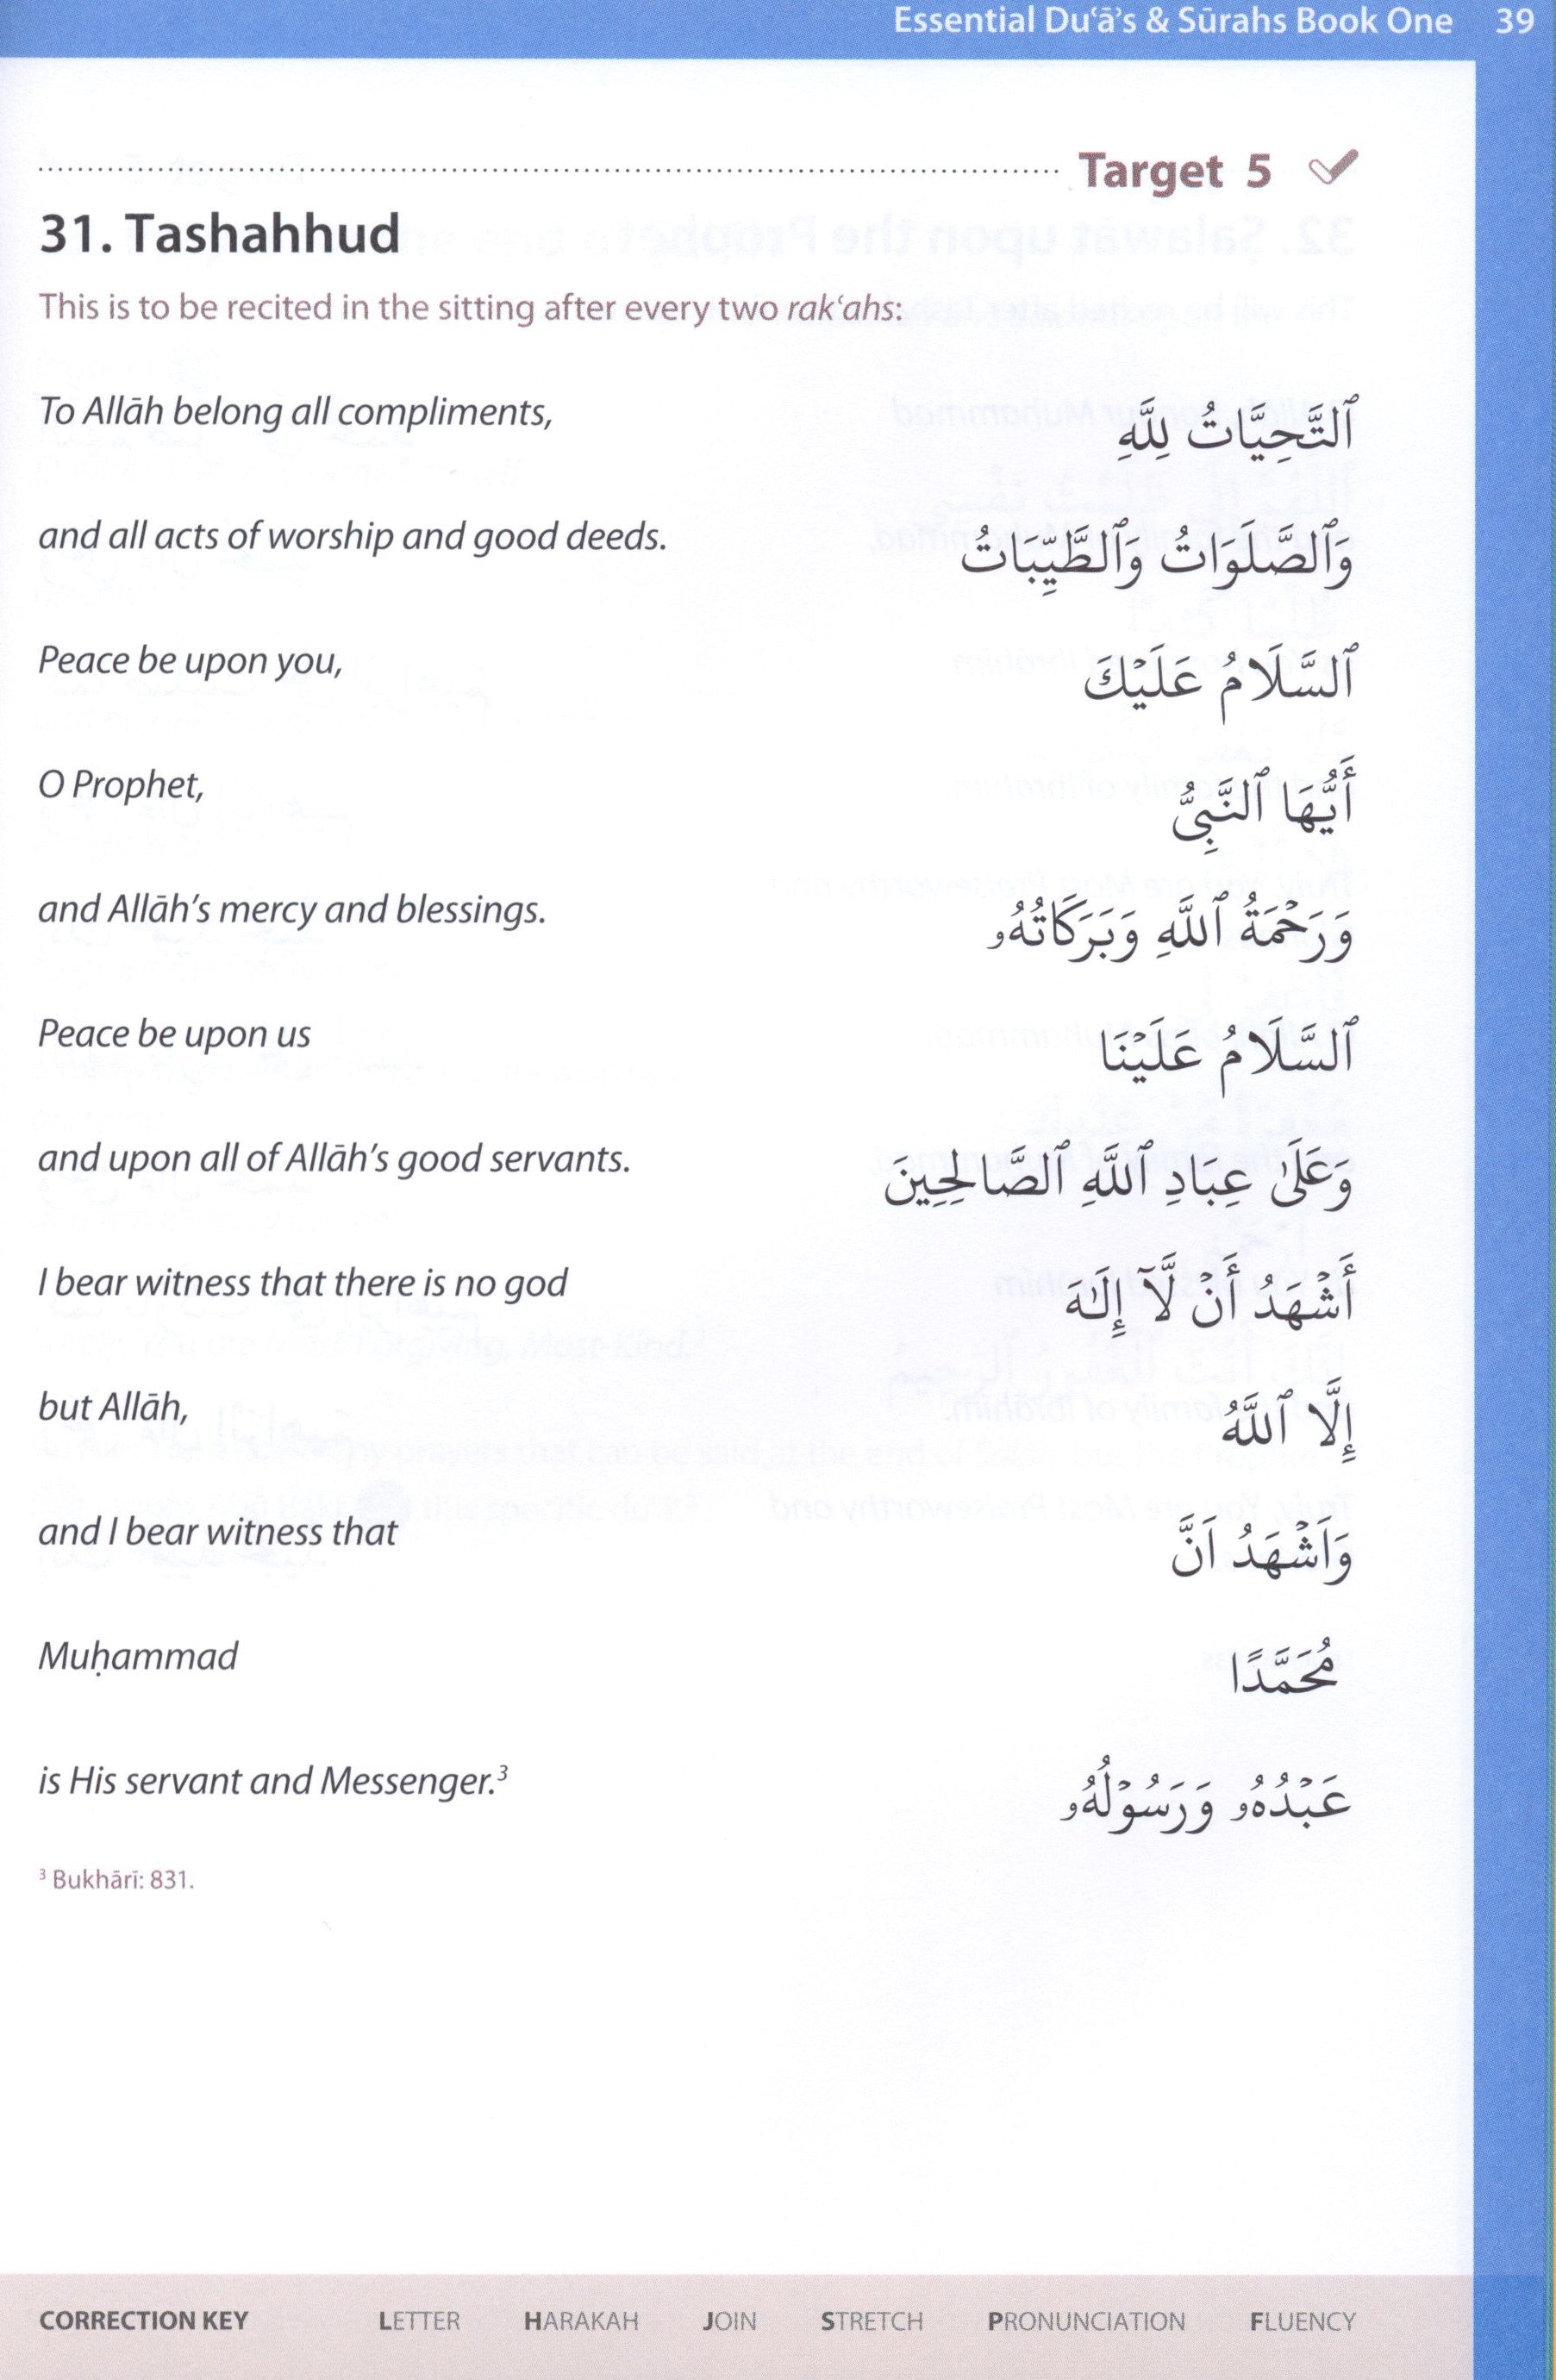 Essential Duʿāʾs & Sūrahs Book One 39
Target 5
31. Tashahhud
This is to be recited in the sitting after every two rakʿahs:
To Allāh belong all compliments, ٱلتَّحِيَّاتُ لِلَّهِ
and all acts of worship and good deeds. وَٱلصَّلَوَاتُ وَٱلطَّيِّبَاتُ
Peace be upon you, ٱلسَّلَامُ عَلَيْكَ
O Prophet, أَيُّهَا ٱلنَّبِىُّ
and Allāh’s mercy and blessings. وَرَحْمَةُ ٱللَّهِ وَبَرَكَاتُهُۥ
Peace be upon us ٱلسَّلَامُ عَلَيْنَا
and upon all of Allāh’s good servants. وَعَلَىٰ عِبَادِ ٱللَّهِ ٱلصَّالِحِينَ
I bear witness that there is no god أَشْهَدُ أَنْ لَّآ إِلَـٰهَ
but Allāh, إِلَّا ٱللَّهُ
and I bear witness that وَاَشْهَدُ اَنَّ
Muḥammad مُحَمَّدًا
is His servant and Messenger.³ عَبْدُهُۥ وَرَسُوْلُهُۥ
³ Bukhārī: 831.
CORRECTION KEY LETTER HARAKAH JOIN STRETCH PRONUNCIATION FLUENCY